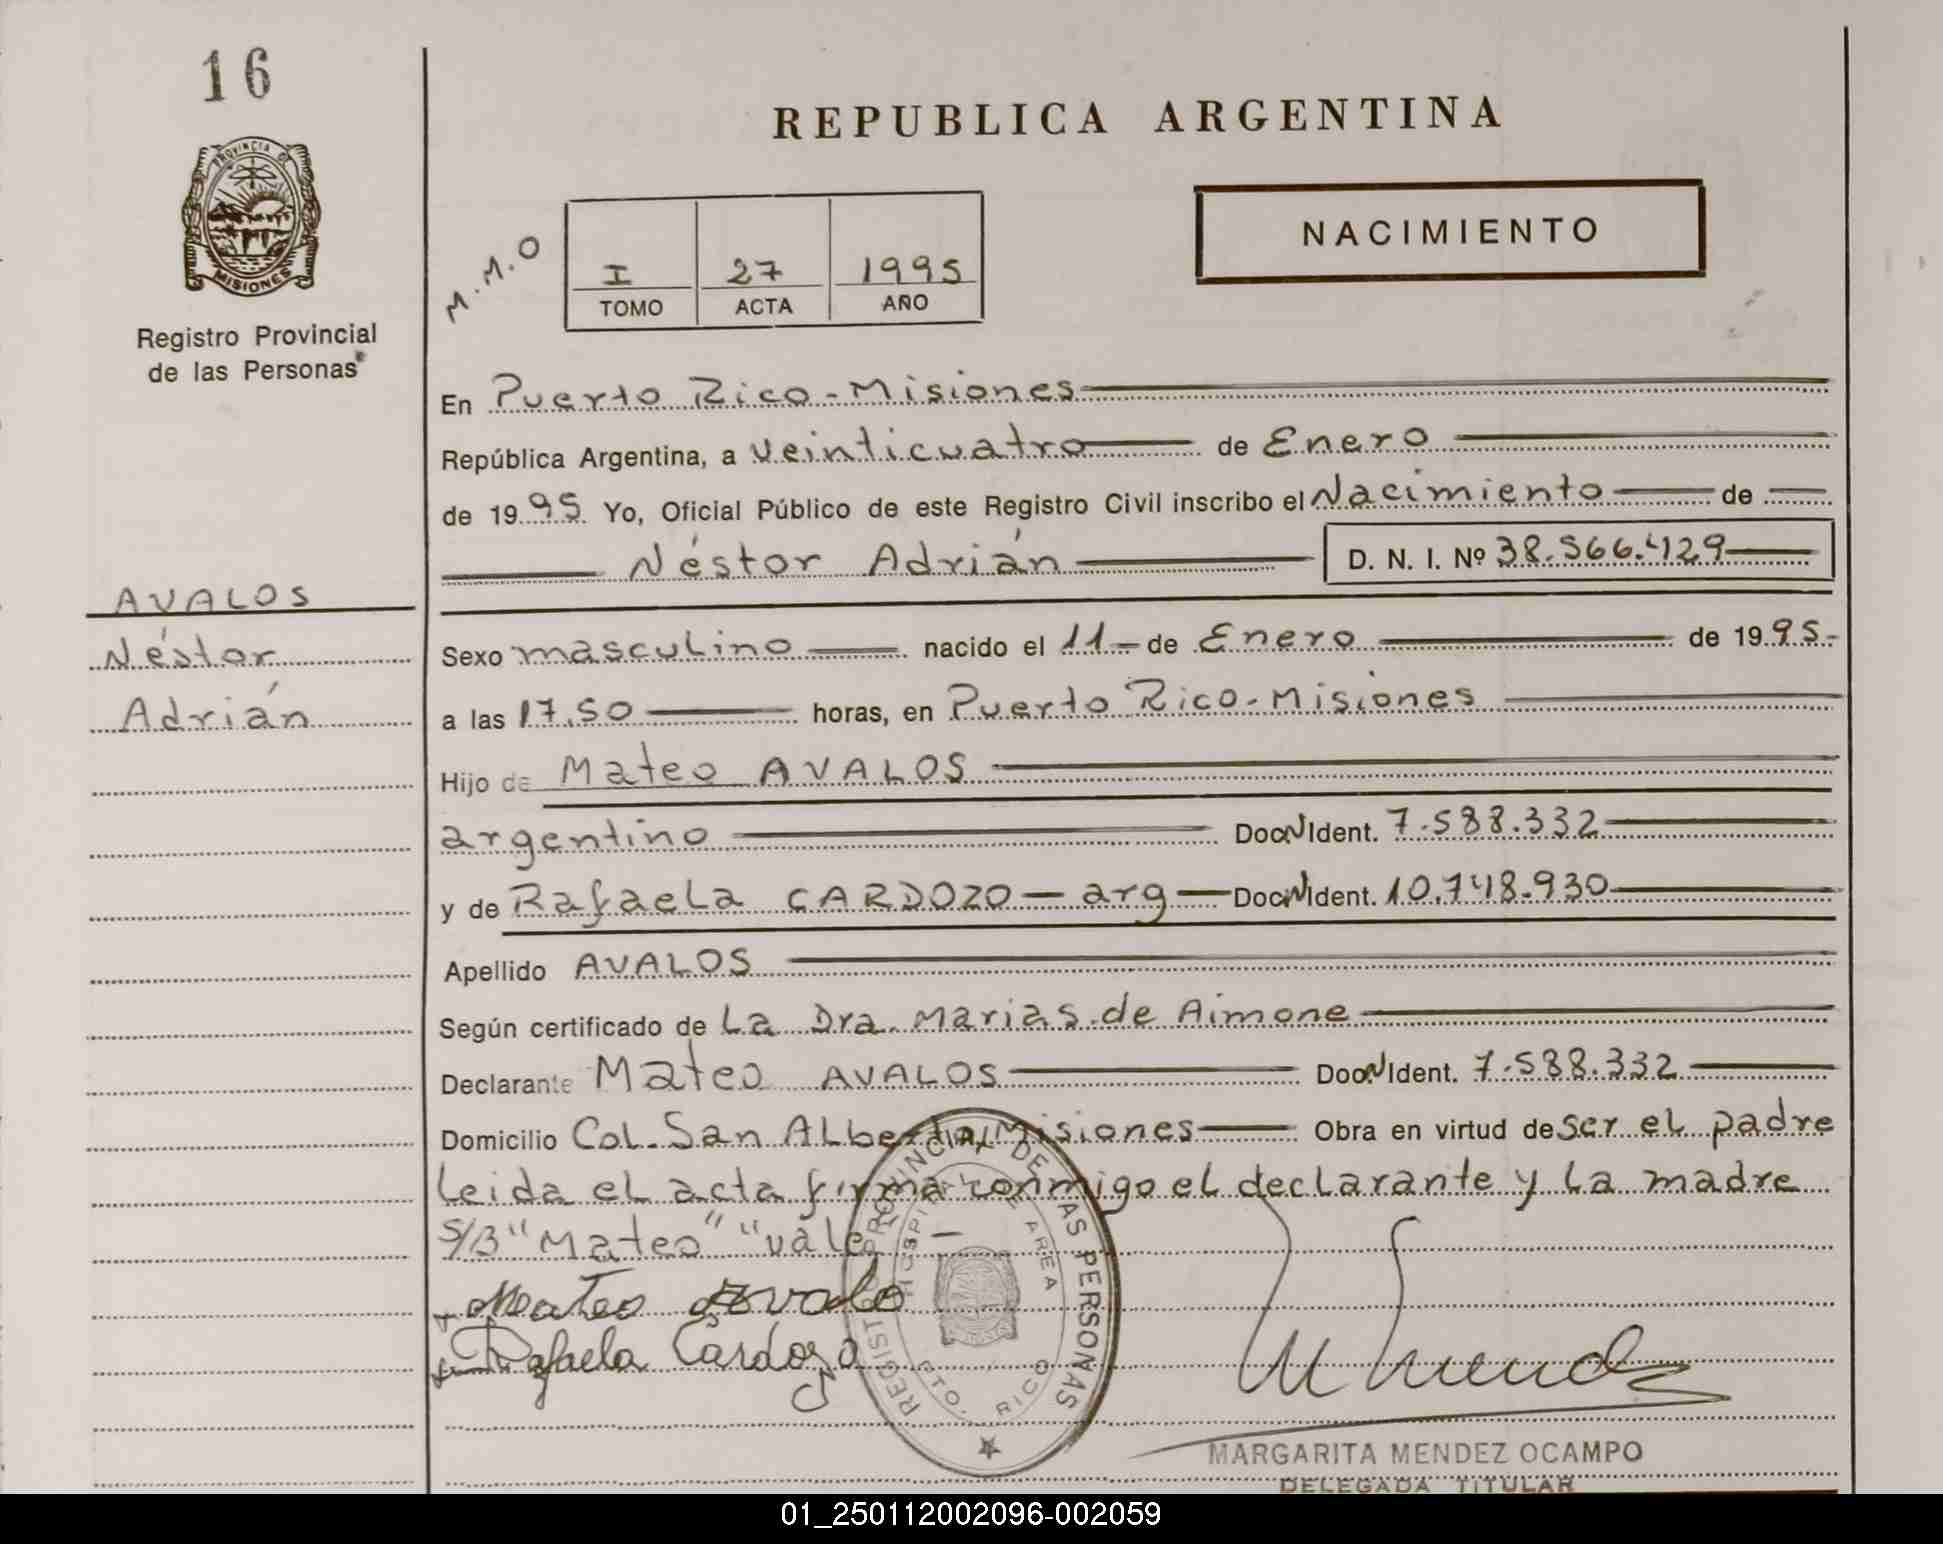 16
PROVINCIA DE
MISIONES
Registro Provincial
de las Personas
AVALOS
Néstor
Adrián
REPUBLICA ARGENTINA
M.M.O
I 27 1995
TOMO ACTA AÑO
NACIMIENTO
En Puerto Rico-Misiones
República Argentina, a veinticuatro de Enero
de 1995 Yo, Oficial Público de este Registro Civil inscribo el Nacimiento de
Néstor Adrián D. N. I. Nº 38.566.429
Sexo masculino nacido el 11 de Enero de 1995.-
a las 17.50 horas, en Puerto Rico-Misiones
Hijo de Mateo AVALOS
argentino Doc. N Ident. 7.588.332
y de Rafaela CARDOZO - arg - Doc. N Ident. 10.748.930
Apellido AVALOS
Según certificado de La Dra. Marias de Aimone
Declarante Mateo AVALOS Doc. N Ident. 7.588.332
Domicilio Col. San Alberto, Misiones Obra en virtud de ser el padre
Leida el acta firma conmigo el declarante y la madre
S/B "Mateo" "vale
Mateo Avalo
Rafaela Cardozo
REGISTRO PROVINCIAL DE LAS PERSONAS
HOSPITAL DE AREA
PTO. RICO
M Mendez
MARGARITA MENDEZ OCAMPO
DELEGADA TITULAR
01_250112002096-002059